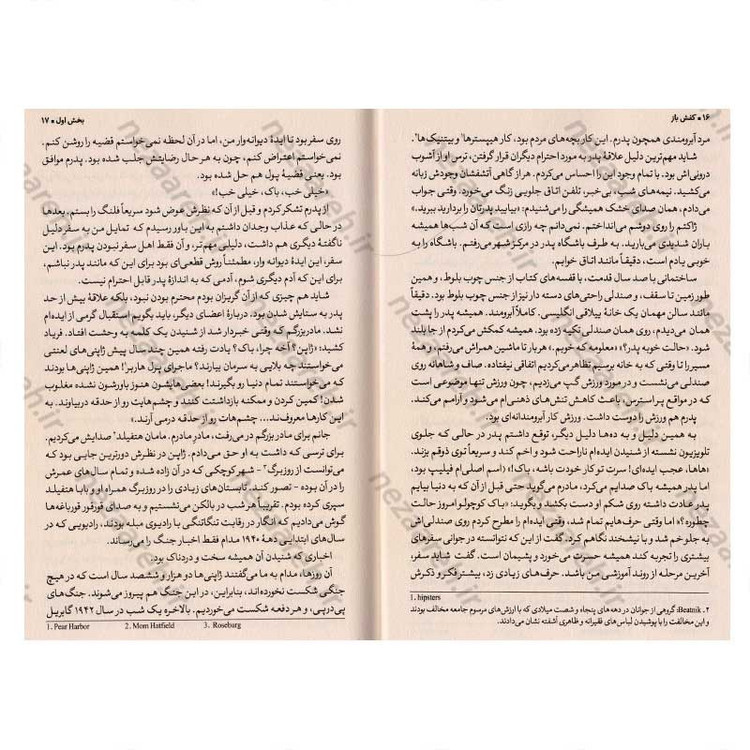 ۱۶ • کفش باز
مرد آبرومندی همچون پدرم. این کار بچه‌های مردم بود، کار هیپسترها¹ و بیتنیک‌ها².
شاید مهم‌ترین دلیل علاقهٔ پدر به مورد احترام دیگران قرار گرفتن، ترس او از آشوب
درونی‌اش بود. با تمام وجود این را احساس می‌کردم. هراز گاهی آتشفشان وجودش زبانه
می‌کشید. نیمه‌های شب، بی‌خبر، تلفن اتاق جلویی زنگ می‌خورد. وقتی جواب
می‌دادم، همان صدای خشک همیشگی را می‌شنیدم: «بیایید پدرتان را بردارید ببرید.»
ژاکتم را روی دوشم می‌انداختم. نمی‌دانم چه رازی است که آن شب‌ها همیشه
باران شدیدی می‌بارید. به طرف باشگاه پدر در مرکز شهر می‌رفتم. باشگاه را به
خوبی یادم است، دقیقاً مانند اتاق خوابم.
ساختمانی با صد سال قدمت، با قفسه‌های کتاب از جنس چوب بلوط، و همین
طور زمین تا سقف، و صندلی راحتی‌های دسته دار نیز از جنس چوب بلوط بود. دقیقاً
مانند سالن مهمان یک خانهٔ ییلاقی انگلیسی. کاملاً آبرومند. همیشه پدر را پشت
همان می‌دیدم، روی همان صندلی تکیه زده بود. همیشه کمکش می‌کردم از جا بلند
شود. «حالت خوبه پدر؟» «معلومه که خوبم.» هربار تا ماشین همراش می‌رفتم، و همهٔ
مسیر را تا وقتی که به خانه برسیم تظاهر می‌کردیم اتفاقی نیفتاده. صاف و شاهانه روی
صندلی می‌نشست و در مورد ورزش گپ می‌زدیم، چون ورزش تنها موضوعی است
که در مواقع پراسترس، باعث کاهش تنش‌های ذهنی‌ام می‌شود و آرامم می‌کند.
پدرم هم ورزش را دوست داشت. ورزش کار آبرومندانه‌ای بود.
به همین دلیل و به ده‌ها دلیل دیگر، توقع داشتم پدر در حالی که جلوی
تلویزیون نشسته از شنیدن ایده‌ام ناراحت شود و اخم کند و سریعاً توی ذوقم بزند.
«هاها، عجب ایده‌ای! سرت تو کار خودت باشه، باک!» (اسم اصلی‌ام فیلیپ بود،
اما پدر همیشه باک صدایم می‌کرد، مادرم می‌گوید حتی قبل از آن که به دنیا بیایم
پدر عادت داشته روی شکم او دست بکشید و بگوید: «باک کوچولو امروز حالت
چطوره؟») اما وقتی حرف‌هایم تمام شد، وقتی ایده‌ام را مطرح کردم روی صندلی‌اش
به جلو خم شد و با نیشخند نگاهم کرد. گفت از این که نتوانسته در جوانی سفرهای
بیشتری را تجربه کند همیشه حسرت می‌خورد و پشیمان است. گفت شاید سفر،
آخرین مرحله از روند آموزشی من باشد. حرف‌های زیادی زد، بیشتر فکر و ذکرش
1. hipsters
۲. Beatnik: گروهی از جوانان در دهه های پنجاه و شصت میلادی که با ارزش‌های مرسوم جامعه مخالف بودند
و این مخالفت را با پوشیدن لباس‌های فقیرانه و ظاهری آشفته نشان می‌دادند.
بخش اول • ۱۷
روی سفر بود تا ایدهٔ دیوانه‌وار من، اما در آن لحظه نمی‌خواستم قضیه را روشن کنم.
نمی‌خواستم اعتراض کنم، چون به هر حال رضایتش جلب شده بود. پدرم موافق
بود. یعنی قضیهٔ پول هم حل شده بود.
«خیلی خب، باک، خیلی خب!»
از پدرم تشکر کردم و قبل از آن که نظرش عوض شود سریعاً فلنگ را بستم. بعدها
در حالی که عذاب وجدان داشتم به این باور رسیدم که تمایل من به سفر دلیل
ناگفتهٔ دیگری هم داشت، دلیلی مهم‌تر، و آن فقط اهل سفر نبودن پدرم بود. این
سفر، این ایدهٔ دیوانه وار، مطمئناً روش قطعی‌ای بود برای این که مانند پدر نباشم،
برای این که آدم دیگری شوم، آدمی که به اندازهٔ پدر قابل احترام نیست.
شاید هم چیزی که از آن گریزان بودم محترم بودن نبود، بلکه علاقهٔ بیش از حد
پدر به ستایش شدن بود. دربارهٔ اعضای دیگر، باید بگویم استقبال گرمی از ایده‌ام
نشد. مادربزرگم که وقتی خبردار شد از شنیدن یک کلمه به وحشت افتاد. فریاد
کشید: «ژاپن؟ آخه چرا، باک؟ یادت رفته همین چند سال پیش ژاپنی‌های لعنتی
می‌خواستند چه بلایی به سرمان بیارند؟ ماجرای پرل هاربر¹! همین ژاپنی‌ها بودند
که می‌خواستند تمام دنیا رو بگیرند! بعضی‌هاپشون هنوز باورشون نشده مغلوب
شدن! کمین کردن و ممکنه بازداشتت کنند و چشم‌هایت رو از حدقه دربیاوند. به
این کارها معروف‌ند... چشم‌هات رو از حدقه درمی آرند.»
جانم برای مادربزرگم در می‌رفت، مادرِ مادرم. مامان هتفیلد² صدایش می‌کردیم.
برای ترسی که داشت به او حق می‌دادم. ژاپن در نظرش دورترین جایی بود که
می‌توانست از روزبرگ³ - شهر کوچکی که در آن زاده شده و تمام سال‌های عمرش
را در آن بوده - تصور کند. تابستان‌های زیادی را در روزبرگ همراه او و بابا هتفیلد
سپری کرده بودم. تقریباً هر شب در بالکن می‌نشستیم و به صدای قورقور قورباغه‌ها
گوش می‌دادیم که انگار در رقابت تنگاتنگی با رادیوی مبله بودند، رادیویی که در
سال‌های ابتدایی دههٔ ۱۹۴۰ مدام فقط اخبار جنگ را می‌رساند.
اخباری که شنیدن آن همیشه سخت و دردناک بود.
آن روزها، مدام به ما می‌گفتند ژاپنی‌ها دو هزار و ششصد سال است که در هیچ
جنگی شکست نخورده‌اند، بنابراین، در این جنگ هم پیروز می‌شوند. جنگ‌های
پی‌درپی، و هر دفعه شکست می‌خوردیم. بالاخره یک شب در سال ۱۹۴۲ گابریل
1. Pear Harbor 2. Mom Hatfield 3. Roseburg
nezaareh.ir